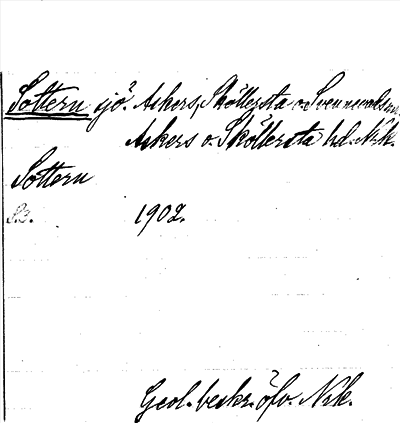 Sottern sjö. Askers, Sköllersta o. Svennevads sn.
Askers o. Sköllersta hd. Nrk.
Sottern
S. 3. 1902.
Geol. beskr. öfv. Nrk.